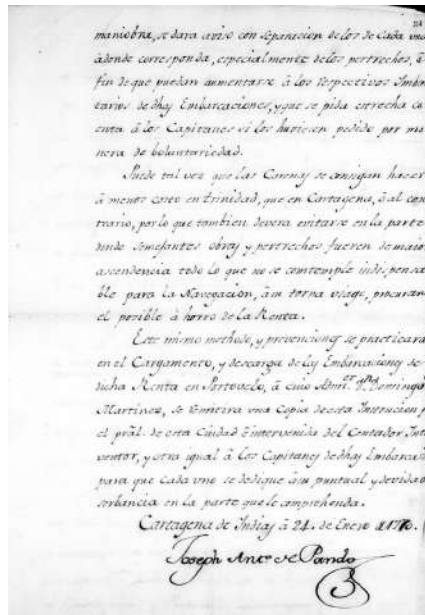 maniobra, se dara aviso con separacion de los de Cada vno
àdonde corresponda, especialmente de los pertrechos, à
fin de que puedan aumentarse à los respectivos Imben
tarios de dhas Embarcaciones, y que se pida estrecha cu
enta à los Capitanes si los huvieren pedido por ma
nera de boluntariedad.
Puede tal vez que las Carenas se consigan hacer
à menos costo en trinidad, que en Cartagena, ô al con
trario, por lo que tambien devera evitarse en la parte
donde semejantes obras y pertrechos fueren de maior
ascendencia todo lo que no se comtemple indispensa
ble para la Navegacion, à su torna viage, procuran
el posible à horro de la Renta.
Este mismo methodo, y prevenciones se practicara
en el Cargamento, y descarga de las Embarcaciones de
dicha Renta en Portovelo, à cuio Admor. Dn. Domingo
Martinez, se remitira vna Copia de esta Instrucion p
el pral. de esta Ciudad è intervenida del Contador Inte
ventor, y otra igual à los Capitanes de dhas Embarcac
para que cada vno se dedique à su puntual y devida o
servancia en la parte que le comprehenda.
Cartagena de Indias à 24. de Enero de 1770.
Joseph Anto. de Pando